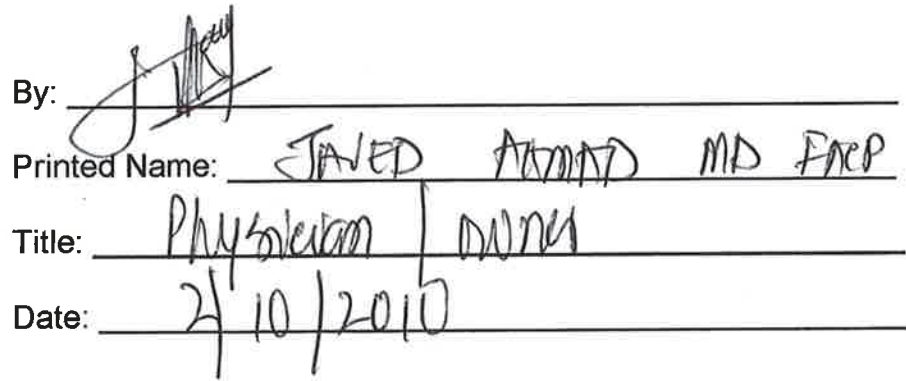 By:
Printed Name: JAVED AHMAD MD FACP
Title: Physician / owner
Date: 2/10/2010